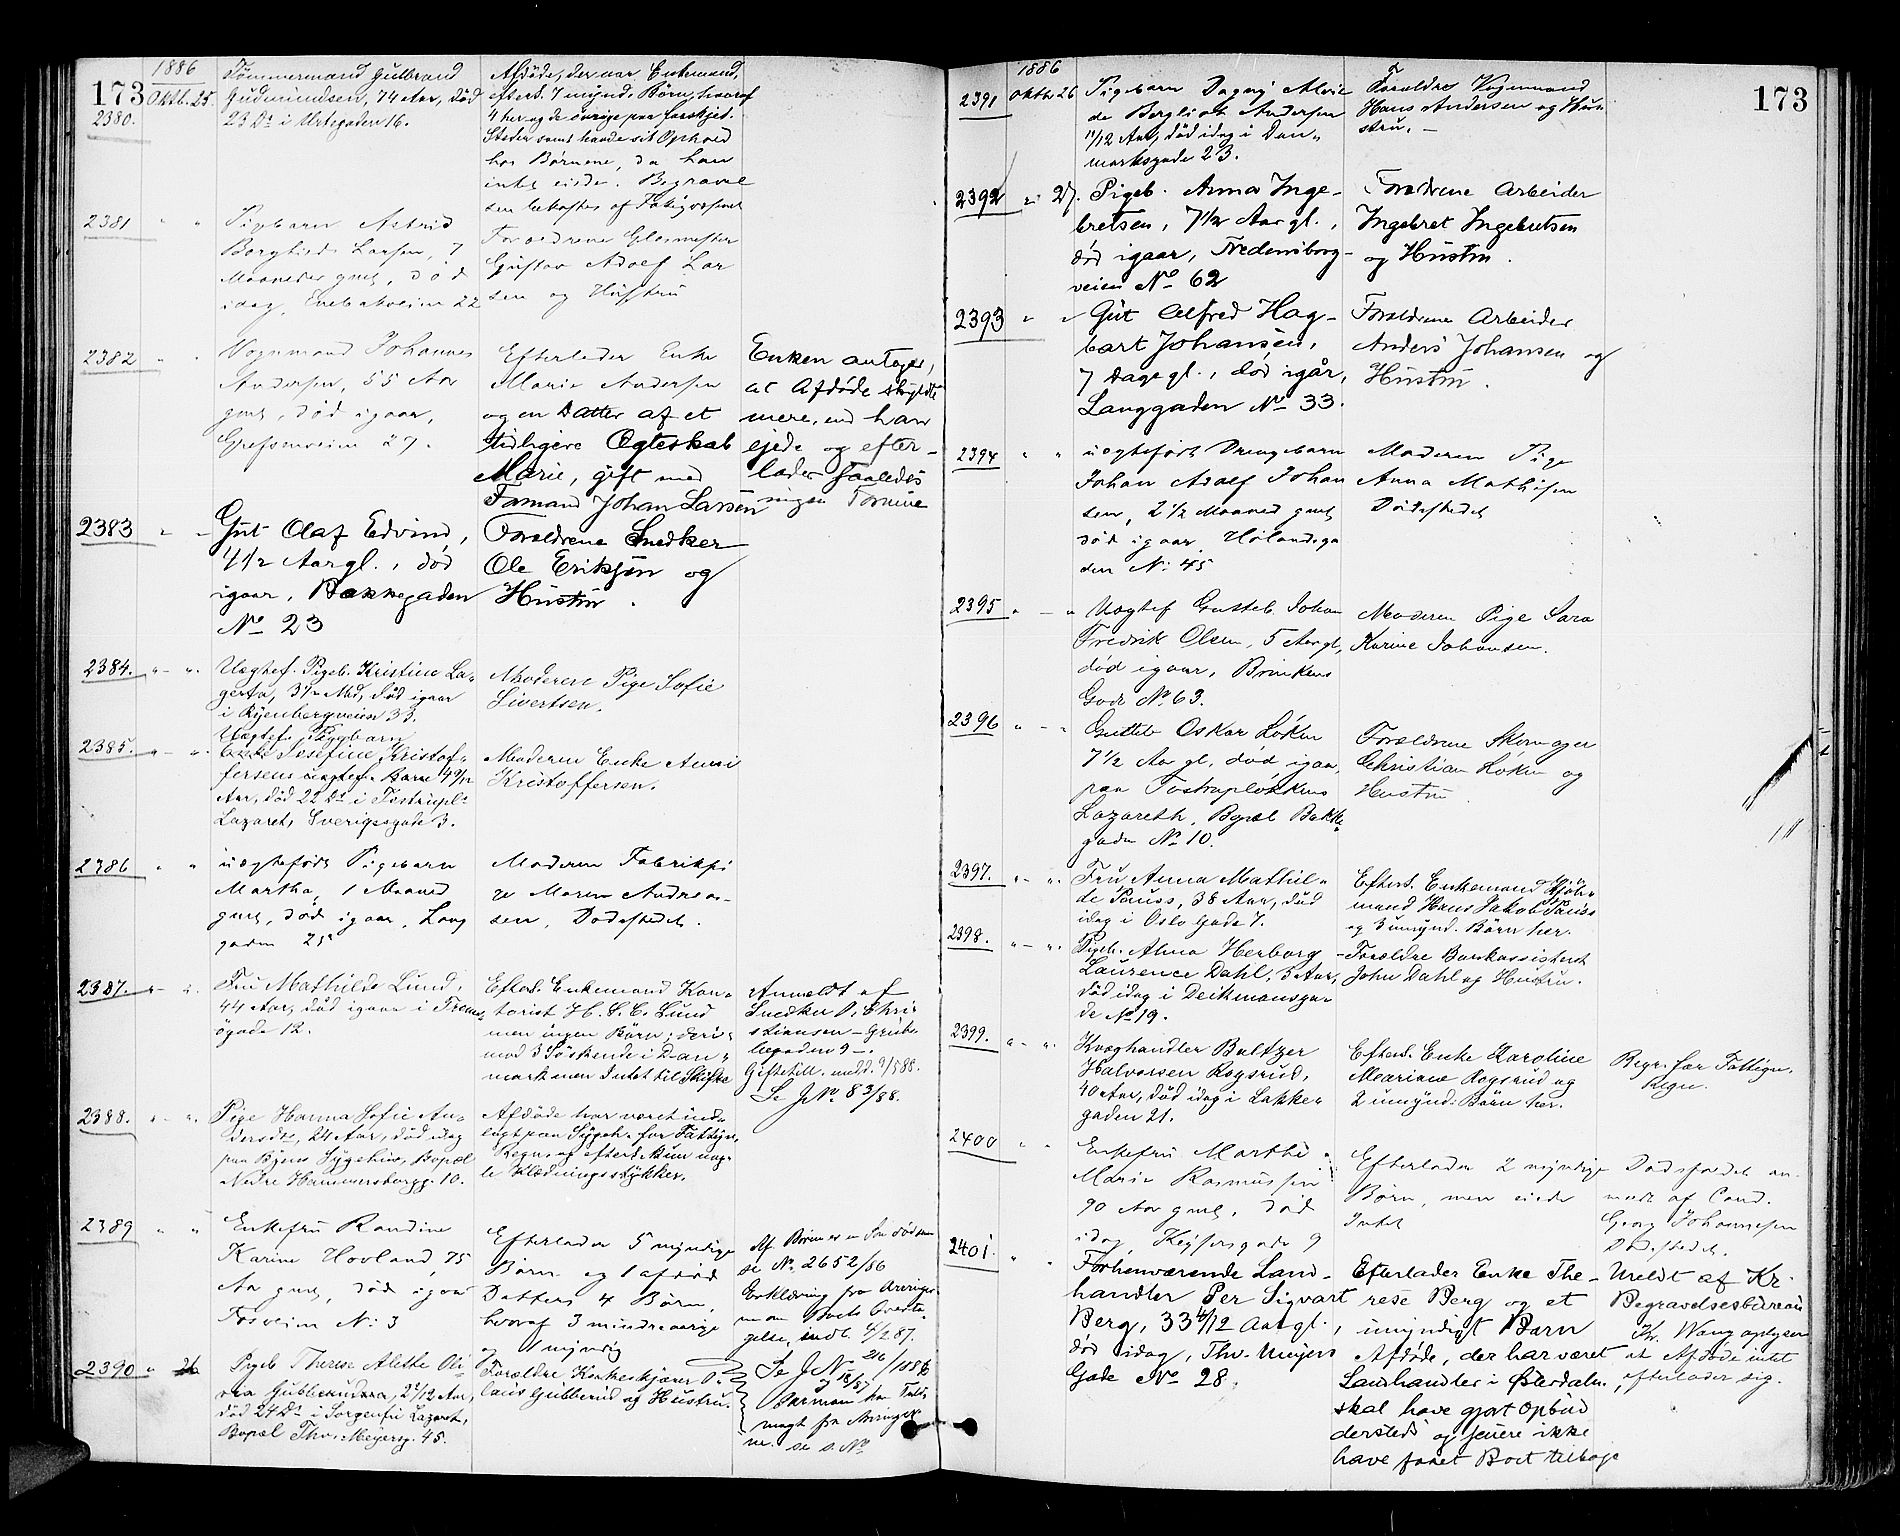 173
1886
2380.
Oktb. 25.
Tømmermand Gulbrand
Gudmundsen, 74 Aar, død
23 Ds i Urtegaden 16.
Afdøde, der var Enkemand,
efterl. 7 mynd. Børn, hvoraf
4 her og de øvrige paa forskjel.
Steder samt havde sit Ophold
hos Børnene, da han
intet eiede. Begravel
sen bekostes af Fattigvæsenet
2381 " "
Pigebarn Astrid
Borghild Larsen, 7
Maaneder gml, død
idag, Enebakveien 22
Forældrene Glasmester
Gustav Adolf Lar
sen og Hustru
2382 " "
Vognmand Johannes
Andersen, 55 Aar
gml, død igaar,
Grefsenveien 27.
Efterlader Enke
Marie Andersen
og en Datter af et
tidligere Egteskab
Marie, gift med
Formand Johan Larsen
Enken antager,
at Afdøde skyldte
mere, end han
ejede og efter-
lader saaledes
ingen Formue
2383 " "
Gut Olaf Edvind,
1 1/2 Aar gl., død
igaar, Bakkegaden
No 23
Forældrene Snedker
Ole Eriksen og
Hustru.
2384. " - "
Uægtef. Pigeb. Kristine La-
gerta, 3 1/2 Md, død igaar
i Ryenbergveien 33.
Moderen Pige Sofie
Sivertsen.
2385. " - "
Uægtef. Pigebarn
Enke Josefine Kristof-
fersens uægtef. Barn 4 9/12
Aar, død 22 Ds i Tostrupl-
Lazaret, Sverigesgade 3.
Moderen Enke Anni
Kristoffersen.
2386 " "
uægtefødt Pigebarn
Martha, 1 Maaned
gml, død igaar, Lang
gaden 25
Moderen Fabrikpi
ge Maren Andrea-
sen, Dødsstedet.
2387. " - "
Fru Mathilde Lund,
44 Aar, død igaar i Trom-
øgade 12.
Efterl. Enkemand Kon-
torist H. S. C. Lund
men ingen Børn; deri-
mod 3 Søskende i Dan-
mark men Intet til Skifte
Anmeldt af
Snedker O. Chri-
stiansen - Grüb-
begaden 9 -.
Giftetill. medd. 9/5 88.
Se J No 83/88.
2388. " - "
Pige Hanna Sofie An-
dersdt, 24 Aar, død idag
paa Byens Sygehus, Bopæl
Nedre Hammersborgg. 10.
Afdøde har været ind-
lagt paa Sygeh. for Fattigv.
Regn. og efterl. kun nog-
le Klædningsstykker.
2389 " "
Enkefru Randine
Karine Hovland, 75
Aar gml, død igaar
Fosveien No 3
Efterlader 5 myndige
Børn og 1 afdød
Datters 4 Børn,
hvoraf 3 mindreaarige
og 1 myndig
Af Børnene er Søn død sen
se No 2652/86
Erklæring fra Arvinger-
ne om Boets Overta-
gelse, indl. 4/2 87.
2390 " 26
Pigeb. Therese Alette Oli-
via Gubberud, 2 1/12 Aar,
død 24 Ds i Sorgenfri Lazaret,
Bopæl Thv. Meyersg. 45.
Forældre Kontorskjører O-
laus Gubberud og Hustru.
Se J No 216/1886
2391
1886
Oktb. 26
Pigebarn Dagny Alvil
de Bergliot Andersen
11/12 Aar, død idag i Dan-
marksgade 23.
Forældre Vognmand
Hans Andersen og Hu-
stru. -
173
2392 " 27.
Pigeb. Anna Inge-
bretsen, 7 1/2 Aar gl.,
død igaar, Fredensborg-
veien No 62
Forældrene Arbeider
Ingebret Ingebretsen
og Hustru.
2393 " "
Gut Alfred Hag-
bart Johansen,
7 Dage gl., død igår,
Langgaden No 33.
Forældrene Arbeider
Anders Johansen og
Hustru.
2394 " "
uægtefødt Drengebarn
Johan Adolf Johan
sen, 2 1/2 Maaned gml,
død igaar, Hølandsga
den No 45
Moderen Pige
Anna Mathisen
Dødsstedet
2395 " - "
Uægtef Gutteb. Johan
Fredrik Olsen, 5 Aar gl,
død igaar, Brinkens
Gade No 63.
Moderen Pige Sara
Karine Johansen.
2396 " - "
Gutteb Oskar Løken
7 1/2 Aar gl, død igaar,
paa Tostrupløkkens
Lazareth, Bopæl Bakke-
gaden No 10.
Forældrene Skomager
Christian Løken og
Hustru
2397. " - "
Fru Anna Mathil-
de Pauss, 38 Aar, død
idag i Oslo Gade 7.
Efterl. Enkemand Kjøb-
mand Hans Jakob Pauss
og 3 umynd. Børn her.
2398. " - "
Pigeb. Alma Herborg
Laurence Dahl, 3 Aar,
død idag i Deikmansga-
de No 19.
Forældre Bankassistent
John Dahl og Hustru.
2399. " - "
Kvæghandler Baltzer
Halvorsen Rogsrud,
40 Aar, død idag i Lakke-
gaden 21.
Efterl. Enke Karoline
Mariane Rogsrud og
2 umynd. Børn her.
Begr. for Fattigv.
Regn.
2400 " "
Enkefru Marthe
Marie Rasmussen
90 Aar gml, død
idag Keysersgade 9
Efterlader 2 myndige
Børn, men eiede
Intet
Dødsfaldet an-
meldt af Cand.
Georg Johannesen
Dødsstedet.
2401 "
Forhenværende Land-
handler Per Sigvart
Berg, 33 4/12 Aar gl.,
død idag, Thv. Meyers
Gade No 28.
Efterlader Enke The-
rese Berg og et
umyndigt Barn
Afdøde, der har været
Landhandler i Østerdalen,
skal have gjort Opbud
dersteds og senere ikke
have faaet Boet tilbage
Meldt af Kr.
Begravelsesbureau
Hr. Wang oplyser
at Afdøde intet
efterlader sig.